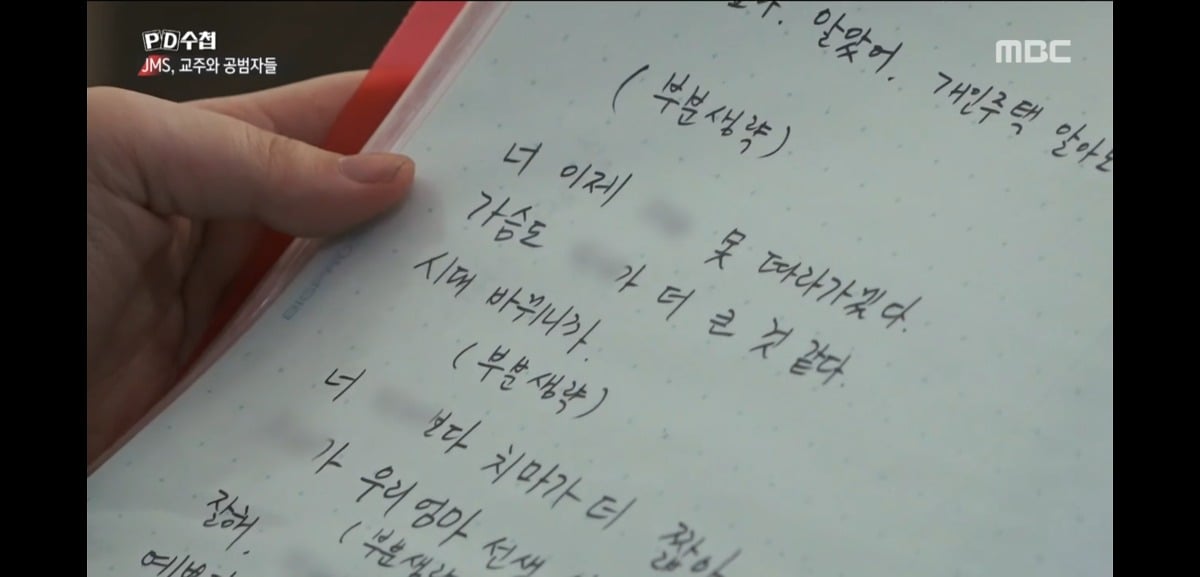 PD수첩
JMS, 교주와 공범자들
MBC
알맞어. 개인주택
(부분생략)
너 이제 못 따라가겠다.
가슴도 가 더 큰 것 같다.
시대 바뀌니까.
(부분생략)
너 보다 치마가 더 짧아
가 우리 엄마 선생
잘해.
(부분생략